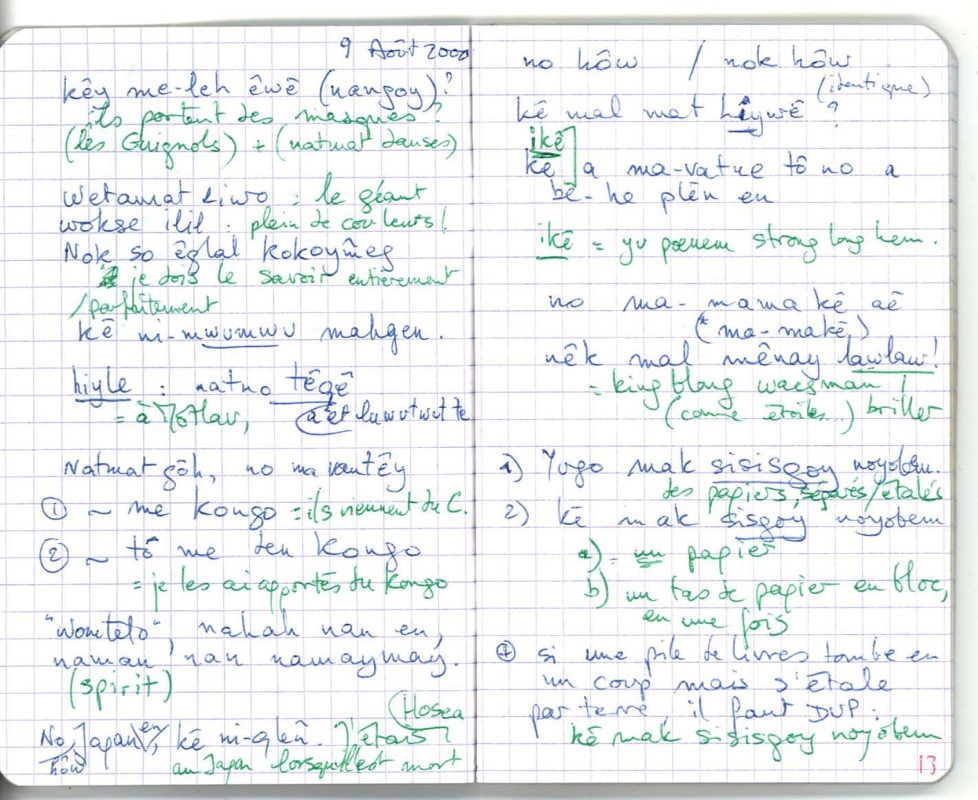 9 Août 2000
kêy me-leh êwê (nangoy)?
ils portent des masques?
(les Guignols) + (natmat danses)
wetamat Liwo : le géant
wokse ilil : plein de couleurs!
Nok so êglal kokoym̄eg
je dois le savoir entièrement
/parfaitement
kê ni-mwumwu mahgen.
hiyle : natno têqê
= à M̄otlav,
Natmat gōh, no ma vantêy
① ~ me Kongo = ils viennent du C.
② ~ tō me den Kongo
= je les ai apportés du Kongo
"wonetelo", nahah nan en,
naman nan namaymay.
(spirit)
(Hosea
No, Japan en, kê ni-qlen̄. J'étais
hōw au Japan lorsqu'il est mort
no hôw / nok hôw
(identique)
kê mal mat hiywê ?
ikê
kê a ma-vatne tô no a
bê-he plên en
ikê = yu poenem strong long hem.
no ma-mama kê aê
(* ma-makê)
nêk mal mênay lawlaw!
= king blong waesman !
(comme étoiles...) briller
1) Yogo mak sisisgoy noyobem.
des papiers, séparés/étalés
2) kê mak sisgoy noyobem
a) - un papier
b) un tas de papier en bloc,
en une fois
④ si une pile de livres tombe en
un coup mais s'étale
par terre, il faut DUP :
kê mak sisisgoy noyobem
13